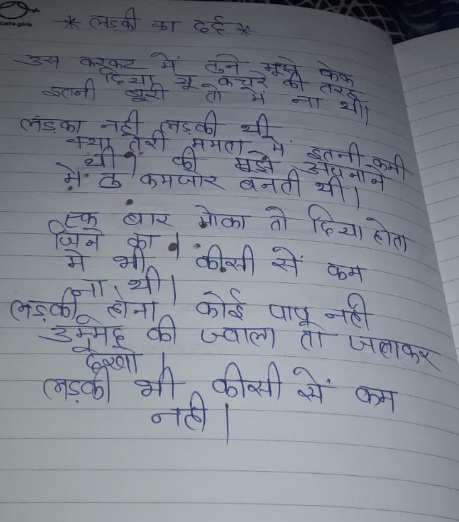 * लड़की का दर्द *
उस करकट में तुने मुझे फेक
दिया यू कचरे की तरह
इतनी बूरी तो मे ना थी।
लड़का नही लड़की थी
क्या तेरी ममता में इतनी कमी
थी। की मुझे अपनाने
मे तु कमजोर बनती थी।
एक बार मोका तो दिया होता
जिने का।
मे भी कीसी सें कम
ना थी।
लड़की होना कोई पाप नही
उम्मेद की ज्वाला तो जलाकर
देखो।
लड़की भी कीसी सें कम
नही।